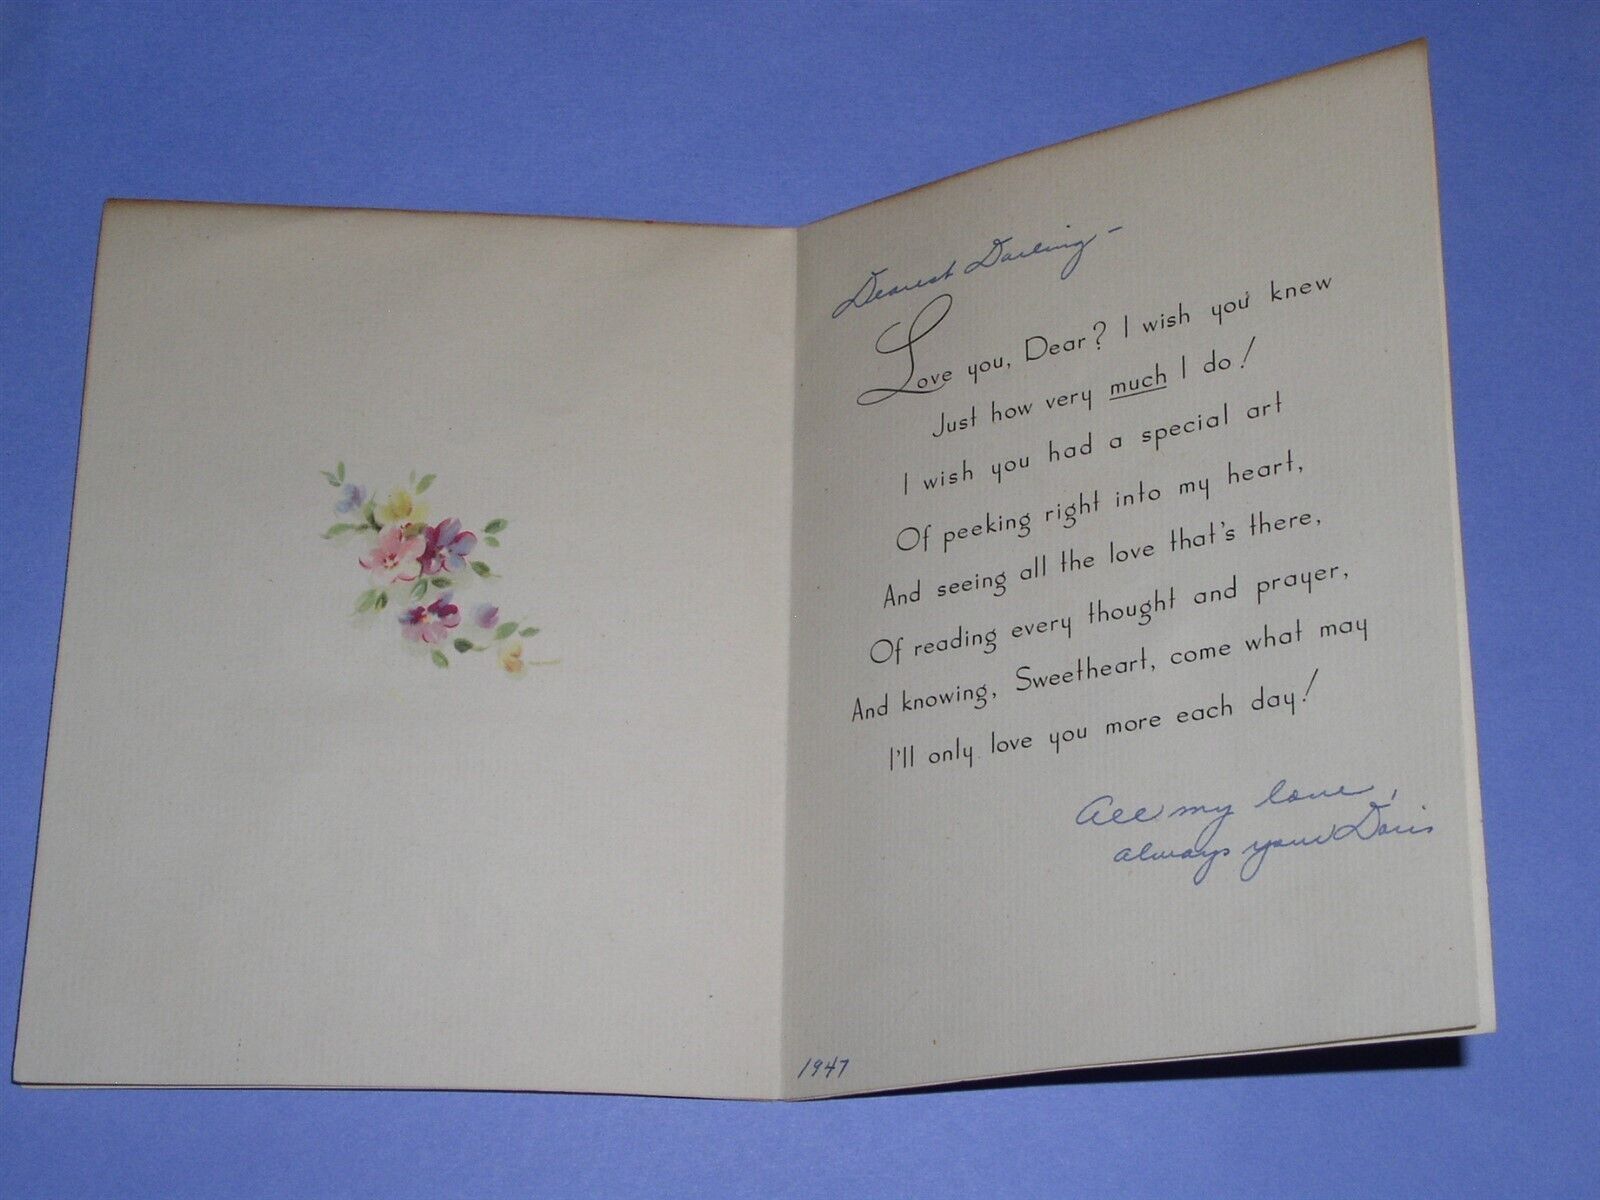 Dearest Darling –
Love you, Dear? I wish you knew
Just how very much I do!
I wish you had a special art
Of peeking right into my heart,
And seeing all the love that's there,
Of reading every thought and prayer,
And knowing, Sweetheart, come what may
I'll only love you more each day!
All my love,
always your Doris
1947